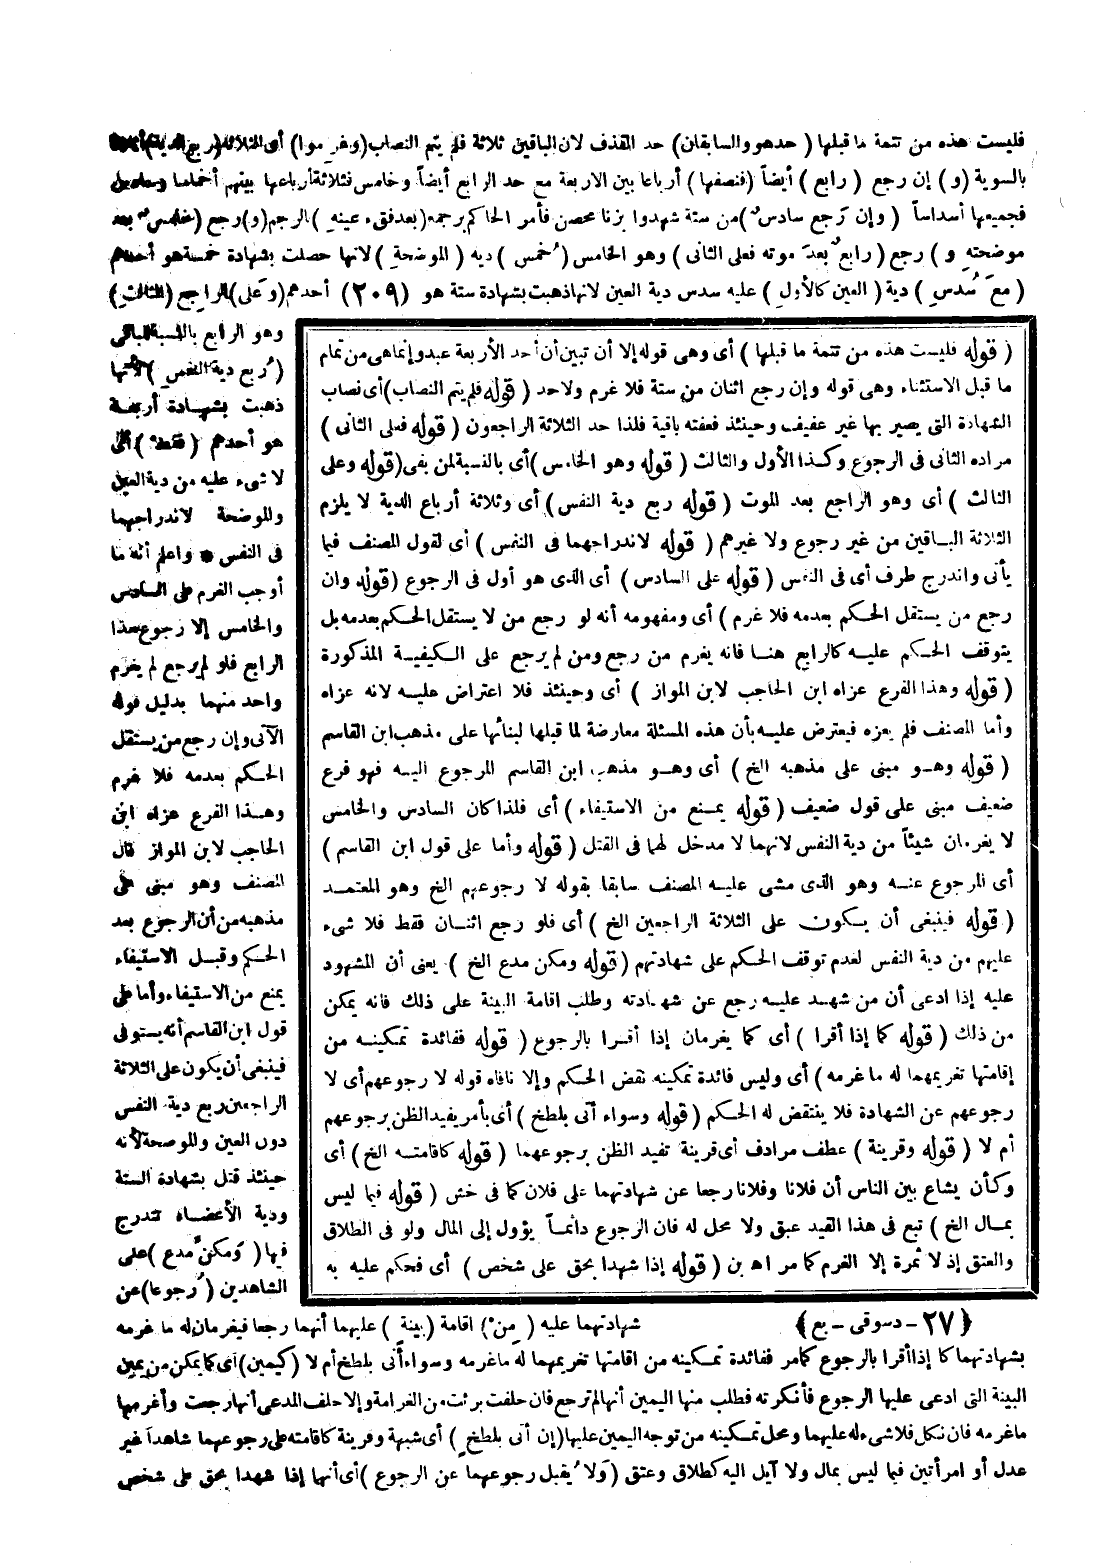 فليست هذه من تتمة ما قبلها ( حدهو والسابقان) حد القذف لان الباقين ثلاثة فلم يتم النصاب (وغرموا) أى الثلاثة (ربع الدية)
بالسوية (و) إن رجع ( رابع ) أيضاً (فنصفها) أرباعا بين الاربعة مع حد الرابع أيضاً وخامس فثلاثة أرباعها بينهم أخماسا وسادس
فجميعها أسداساً ( وإن رَجع سادسٌ) من ستة شهدوا بزنا محصن فأمر الحاكم برجمه (بعد فقء عينهِ ) الرجم (و) رجع (خامسٌ بعد
موضحتهِ و ) رجع ( رابعٌ بعدَ موته فعلى الثانى ) وهو الخامس ( خُمس ) ديه ( الموضحةِ ) لانها حصلت بشهادة خمسة هو أحدهم
( معَ سُدسِ ) دية ( العين كالأولِ ) عليه سدس دية العين لانها ذهبت بشهادة ستة هو (٢٠٩) أحدهم (وَعلى) الراجع (الثالثِ)
وهو الرابع بالنسبة للباقى
( رُبع دية النفسِ ) لأنها
ذهبت بشهادة أربعة
هو أحدهم ( فقط ) أى
لا شىء عليه من دية العين
والموضحة لاندراجهما
فى النفس * واعلم أنه ما
أوجب الغرم على السادس
والخامس إلا رجوع هذا
الرابع فلو لم يرجع لم يغرم
واحد منهما بدليل قوله
الآتى وإن رجع من يستقل
الحكم بعدمه فلا غرم
وهذا الفرع عزاه ابن
الحاجب لابن المواز قال
المصنف وهو مبنى على
مذهبه من أن الرجوع بعد
الحكم وقبل الاستيفاء
يمنع من الاستيفاء وأما على
قول ابن القاسم أنه يستوفى
فينبغى أن يكون على الثلاثة
الراجعين ربع دية النفس
دون العين والموضحة لأنه
حينئذ قتل بشهادة الستة
ودية الأعضاء تندرج
فيها ( وَمكنَ مدع ) على
الشاهدين ( رُجوعا) عن
( قوله فليست هذه من تتمة ما قبلها ) أى وهى قوله إلا أن تبين أن أحد الأربعة عبد وإنما هى من تمام
ما قبل الاستثناء وهى قوله وإن رجع اثنان من ستة فلا غرم ولا حد ( قوله فلم يتم النصاب) أى نصاب
الشهادة التى يصير بها غير عفيف وحينئذ فعفته باقية فلذا حد الثلاثة الراجعون ( قوله فعلى الثانى )
مراده الثانى فى الرجوع وكذا الأول والثالث ( قوله وهو الخامس ) أى بالنسبة لمن بقى (قوله وعلى
الثالث ) أى وهو الراجع بعد الموت ( قوله ربع دية النفس) أى وثلاثة أرباع الدية لا يلزم
الثلاثة الباقين من غير رجوع ولا غيرهم ( قوله لاندراجهما فى النفس ) أى لقول المصنف فيما
يأتى واندرج طرف أى فى النفس ( قوله على السادس ) أى الذى هو أول فى الرجوع (قوله وان
رجع من يستقل الحكم بعدمه فلا غرم ) أى ومفهومه أنه لو رجع من لا يستقل الحكم بعدمه بل
يتوقف الحكم عليه كالرابع هنا فانه يغرم من رجع ومن لم يرجع على الكيفية المذكورة
( قوله وهذا الفرع عزاه ابن الحاجب لابن المواز ) أى وحينئذ فلا اعتراض عليه لانه عزاه
وأما المصنف فلم يعزه فيعترض عليه بأن هذه المسئلة معارضة لما قبلها لبنائها على مذهب ابن القاسم
( قوله وهو مبنى على مذهبه الخ ) أى وهو مذهب ابن القاسم المرجوع اليه فهو فرع
ضعيف مبنى على قول ضعيف ( قوله يمنع من الاستيفاء ) أى فلذا كان السادس والخامس
لا يغرمان شيئاً من دية النفس لانهما لا مدخل لهما فى القتل ( قوله وأما على قول ابن القاسم )
أى المرجوع عنه وهو الذى مشى عليه المصنف سابقا بقوله لا رجوعهم الخ وهو المعتمد
( قوله فينبغى أن يكون على الثلاثة الراجعين الخ ) أى فلو رجع اثنان فقط فلا شىء
عليهم من دية النفس لعدم توقف الحكم على شهادتهم (قوله ومكن مدع الخ ) يعنى أن المشهود
عليه إذا ادعى أن من شهد عليه رجع عن شهادته وطلب اقامة البينة على ذلك فانه يمكن
من ذلك ( قوله كما إذا أقرا ) أى كما يغرمان إذا أقرا بالرجوع ( قوله ففائدة تمكينه من
إقامتها تغريمهما له ما غرمه ) أى وليس فائدة تمكينه نقض الحكم وإلا نافاه قوله لا رجوعهم أى لا
رجوعهم عن الشهادة فلا ينتقض له الحكم ( قوله وسواء أتى بلطخ ) أى بأمر يفيد الظن برجوعهم
أم لا ( قوله وقرينة ) عطف مرادف أى قرينة تفيد الظن برجوعهما ( قوله كاقامته الخ ) أى
وكأن يشاع بين الناس أن فلانا وفلانا رجعا عن شهادتهما على فلان كما فى خش ( قوله فيما ليس
بمال الخ ) تبع فى هذا القيد عبق ولا محل له فان الرجوع دائماً يؤول إلى المال ولو فى الطلاق
والعتق إذ لا ثمرة إلا الغرم كما مر اه بن ( قوله إذا شهدا بحق على شخص ) أى فحكم عليه به
شهادتهما عليه ( مِن ) اقامة ( بينةٍ ) عليهما أنهما رجعا فيغرمان له ما غرمه
﴿ ٢٧ - دسوقى - بع ﴾
بشهادتهما كا إذا أقرا بالرجوع كمامر ففائدة تمكينه من اقامتها تغريمهما له ما غرمه وسواء أتى بلطخ أم لا (كيمين) أى كما يمكن من يمين
البينة التى ادعى عليها الرجوع فأنكرته فطلب منها اليمين أنها لم ترجع فان حلفت برئت من الغرامة وإلا حلف المدعى أنها رجعت وأغرمها
ما غرمه فان نكل فلا شىء له عليهما ومحل تمكينه من توجه اليمين عليها (إن أتى بلطخٍ ) أى شبهة وقرينة كاقامته على رجوعهما شاهداً غير
عدل أو امرأتين فيما ليس بمال ولا آيل اليه كطلاق وعتق ( وَلا يُقبل رجوعهما عن الرجوع ) أى أنهما إذا شهدا بحق على شخص